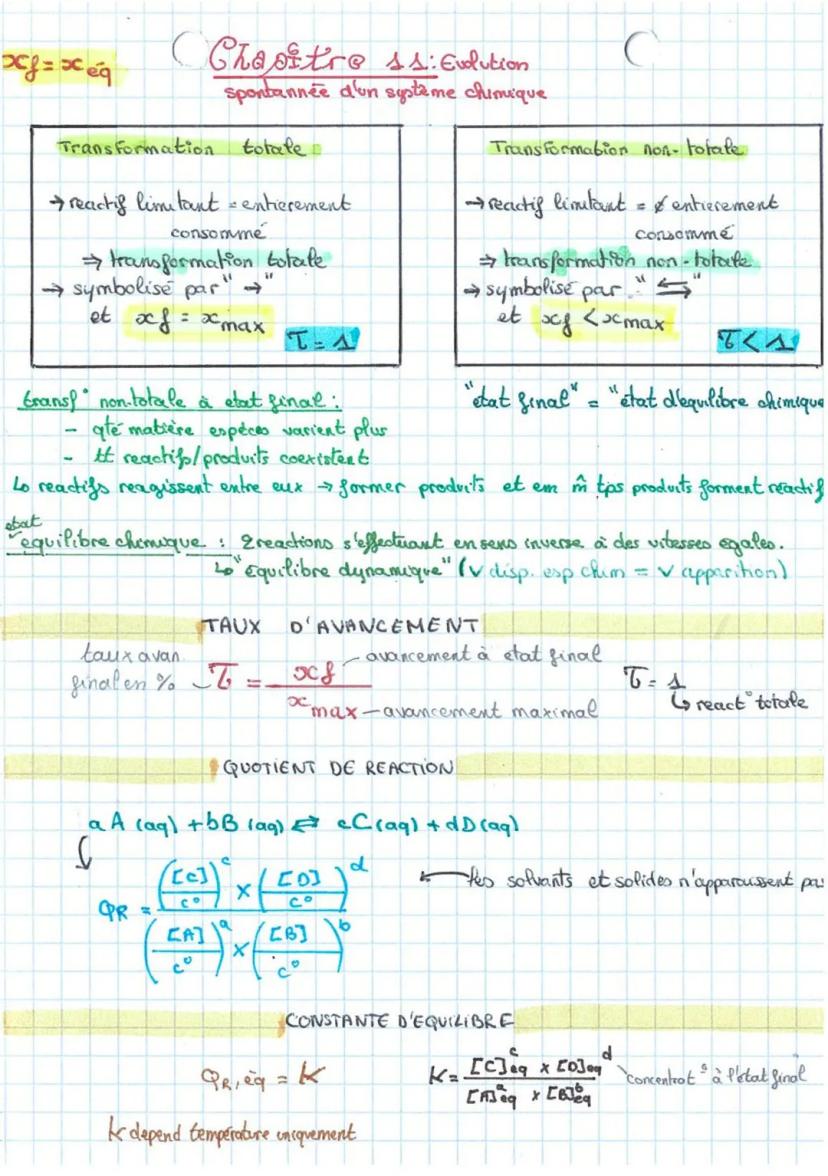 xf = x éq
Chapitre 11: Evolution
spontannée d'un système chimique
Transformation totale
→ reactif limitant = entierement
consommé
⇒ transformation totale
→ symbolisé par "→"
et xf = x max
τ = 1
Transformation non-totale
→ reactif limitant = ∉ entierement
consommé
⇒ transformation non-totale
→ symbolisé par "⇆"
et xf < x max
τ < 1
transf° non-totale à etat final :
- qté matière espèces varient plus
- tt reactifs/produits coexistent
"état final" = "état d'equilibre chimique
↳ reactifs reagissent entre eux → former produits et em m̂ tps produits forment réactif
etat
equilibre chimique : 2 reactions s'effectuant en sens inverse à des vitesses egales.
↳ "équilibre dynamique" (v disp. esp chim = v apparition)
TAUX D'AVANCEMENT
taux avan.
final en %
τ = xf / x max
avancement à etat final
avancement maximal
τ = 1
↳ react° totale
QUOTIENT DE REACTION
a A (aq) + b B (aq) ⇄ c C (aq) + d D (aq)
QR = ([C]/c°)^c × ([D]/c°)^d / ([A]/c°)^a × ([B]/c°)^b
← les solvants et solides n'apparaussent pas
CONSTANTE D'EQUILIBRE
QR, éq = K
K = [C]^c éq × [D]^d éq / [A]^a éq × [B]^b éq
concentrat°s à l'état final
K depend température uniquement